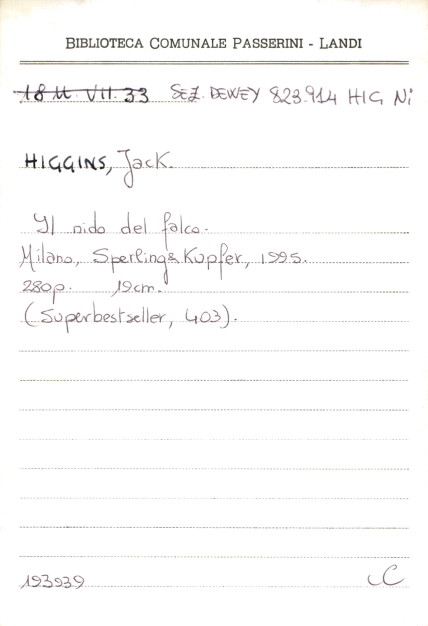 BIBLIOTECA COMUNALE PASSERINI - LANDI
18 M. VII. 33 SEZ. DEWEY 823.914 HIG Ni
HIGGINS, Jack.
Il nido del falco.
Milano, Sperling & Kupfer, 1995.
280p. 19cm.
(Superbestseller, 403).
193939